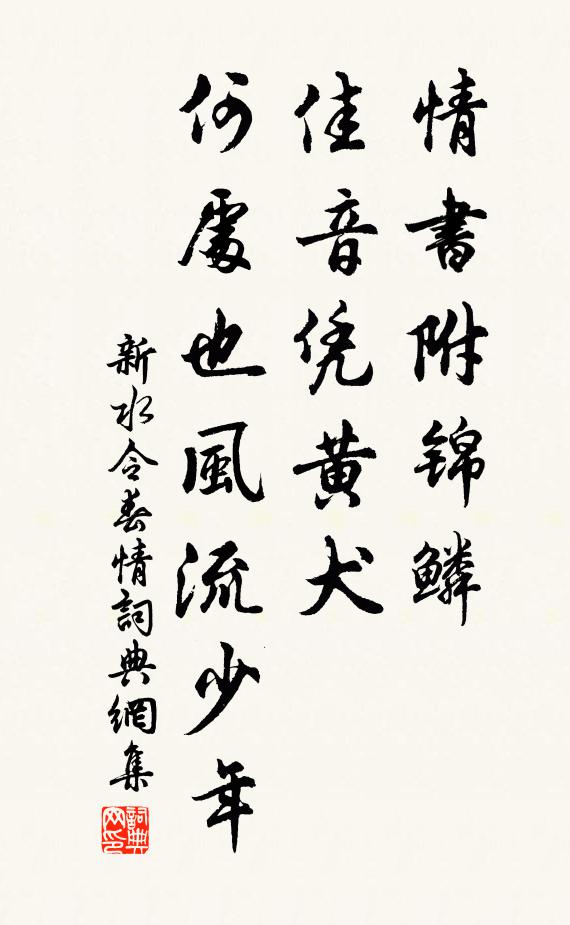 情書附锦鳞
佳音凭黄犬
何處也風流少年
新水令春情詞典網集
詞典网印